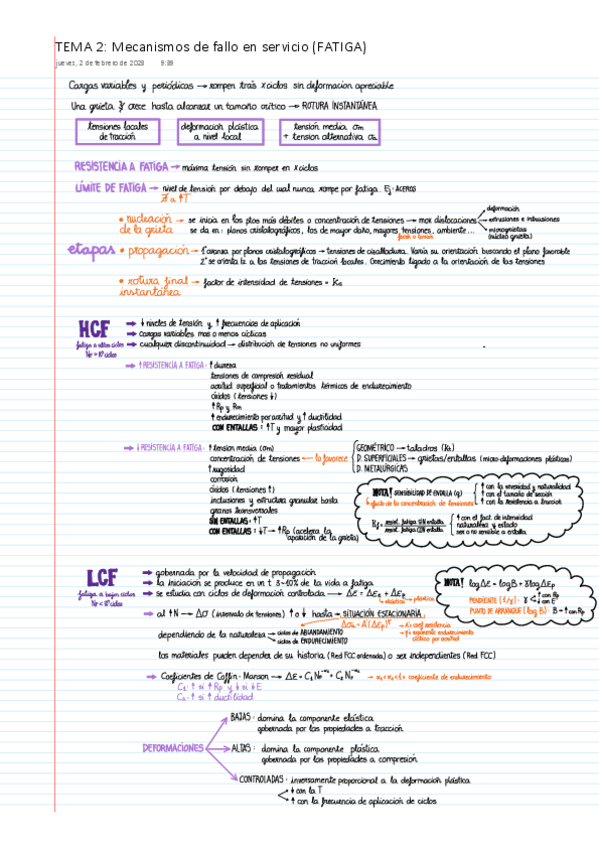 TEMA 2: Mecanismos de fallo en servicio (FATIGA)
jueves, 2 de febrero de 2023 9:39
Cargas variables y periódicas → rompen tras x ciclos sin deformación apreciable
Una grieta ∃ y crece hasta alcanzar un tamaño crítico → ROTURA INSTANTÁNEA
tensiones locales de tracción
deformación plástica a nivel local
tensión media σm + tensión alternativa σa
RESISTENCIA A FATIGA → máxima tensión sin romper en x ciclos
LÍMITE DE FATIGA → nivel de tensión por debajo del cual nunca rompe por fatiga. Ej: ACEROS
∄ a ↑T
etapas
• nucleación de la grieta → se inicia en los ptos más débiles o concentración de tensiones → mov. dislocaciones
deformación
extrusiones e intrusiones
microgrietas (núcleo grieta)
se da en: planos cristalográficos, los de mayor daño, mayores tensiones, ambiente...
• propagación → 1º avanza por planos cristalográficos → tensiones de cizalladura. Varía su orientación buscando el plano favorable
2º se orienta ⊥ a las tensiones de tracción locales. Crecimiento ligado a la orientación de las tensiones
• rotura final instantánea → factor de intensidad de tensiones =
HCF
fatiga a altos ciclos
→ ↓ niveles de tensión y ↑ frecuencias de aplicación
→ cargas variables más o menos cíclicas
→ cualquier discontinuidad → distribución de tensiones no uniformes
→ ↑ RESISTENCIA A FATIGA: ↑ dureza
tensiones de compresión residual
acritud superficial o tratamientos térmicos de endurecimiento
óxidos (tensiones ↓)
↑ Rp y Rm
↑ endurecimiento por acritud y ↑ ductilidad
CON ENTALLAS: ↑T y mayor plasticidad
→ ↓ RESISTENCIA A FATIGA: ↑ tensión media (σm)
concentración de tensiones ← lo favorece
GEOMÉTRICO → taladros (Kt)
D. SUPERFICIALES → grietas/entallas (micro-deformaciones plásticas)
D. METALÚRGICAS
↑ rugosidad
corrosión
óxidos (tensiones ↑)
inclusiones y estructura granular basta
granos transversales
SIN ENTALLAS: ↑T
CON ENTALLAS: ↓T → ↑Rp (acelera la aparición de la grieta)
NOTA! SENSIBILIDAD DE ENTALLA (q)
efecto de la concentración de tensiones
↑ con la severidad y naturalidad
↑ con el tamaño de sección
↑ con la resistencia a tracción
Kf = resist. fatiga SIN entalla / resist. fatiga CON entalla
↑ con el fact. de intensidad
naturaleza y estado
ser o no sensible a entalla
LCF
fatiga a bajos ciclos
→ gobernada por la velocidad de propagación
→ la iniciación se produce en un t 3-10% de la vida a fatiga
→ se estudia con ciclos de deformación controlada → Δε = Δεe + Δεp
elástica
plástica
→ al ↑N → Δσ (intervalo de tensiones) ↑ o ↓ hasta → SITUACIÓN ESTACIONARIA
dependiendo de la naturaleza
ciclos de ABLANDAMIENTO
ciclos de ENDURECIMIENTO
los materiales pueden depender de su historia (Red FCC ordenada) o ser independientes (Red FCC)
NOTA! logΔε = logB + γlogΔεp
→ Coeficientes de Coffin-Manson
C1: ↑ si ↑Rp y ↓ si ↓E
C2: ↑ si ↑ ductilidad
DEFORMACIONES
BAJAS: domina la componente elástica.
gobernada por las propiedades a tracción.
ALTAS: domina la componente plástica.
gobernada por las propiedades a compresión.
CONTROLADAS: inversamente proporcional a la deformación plástica
↓ con la T
↑ con la frecuencia de aplicación de ciclos